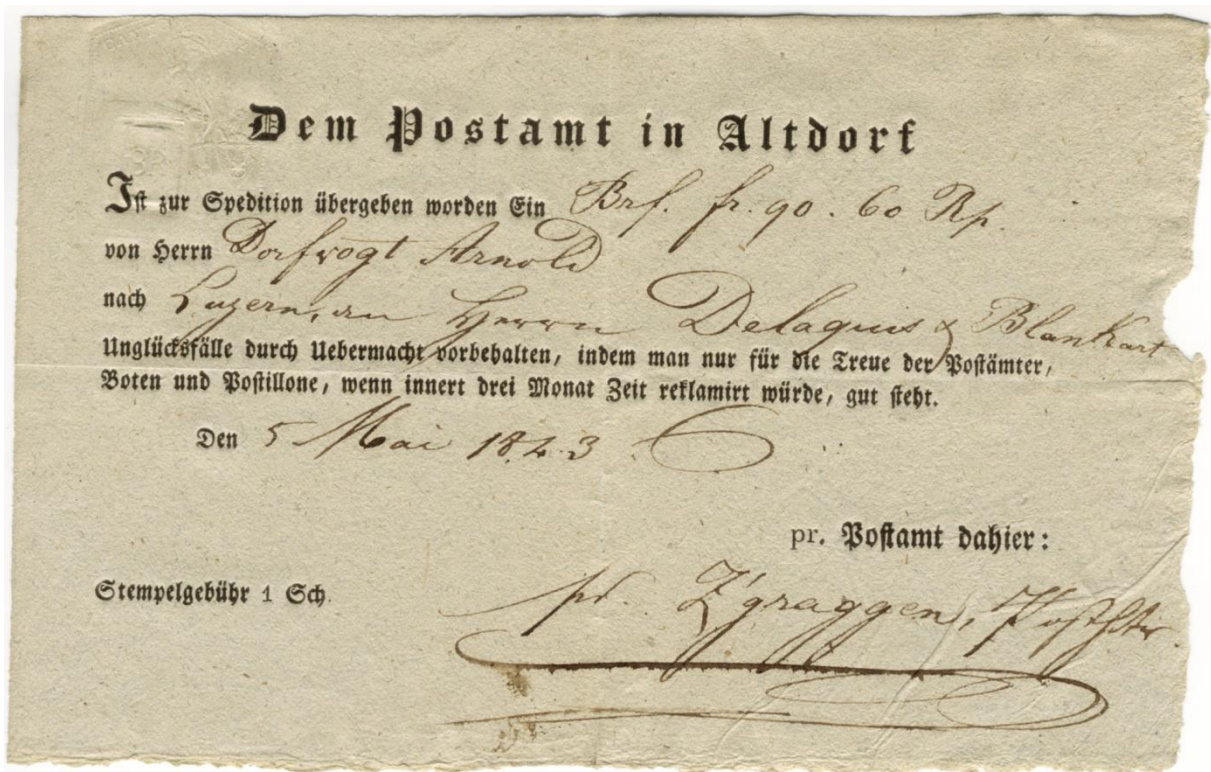 Dem Postamt in Altdorf
Ist zur Spedition übergeben worden Ein Brf. fr. 90. 60 Rp.
von Herrn Dorfvogt Arnold
nach Luzern, an Herrn Delaquis & Blankart
Unglücksfälle durch Uebermacht vorbehalten, indem man nur für die Treue der Postämter,
Boten und Postillone, wenn innert drei Monat Zeit reklamirt würde, gut steht.
Den 5 Mai 1843
pr. Postamt dahier:
Stempelgebühr 1 Sch.
pr. Zgraggen,